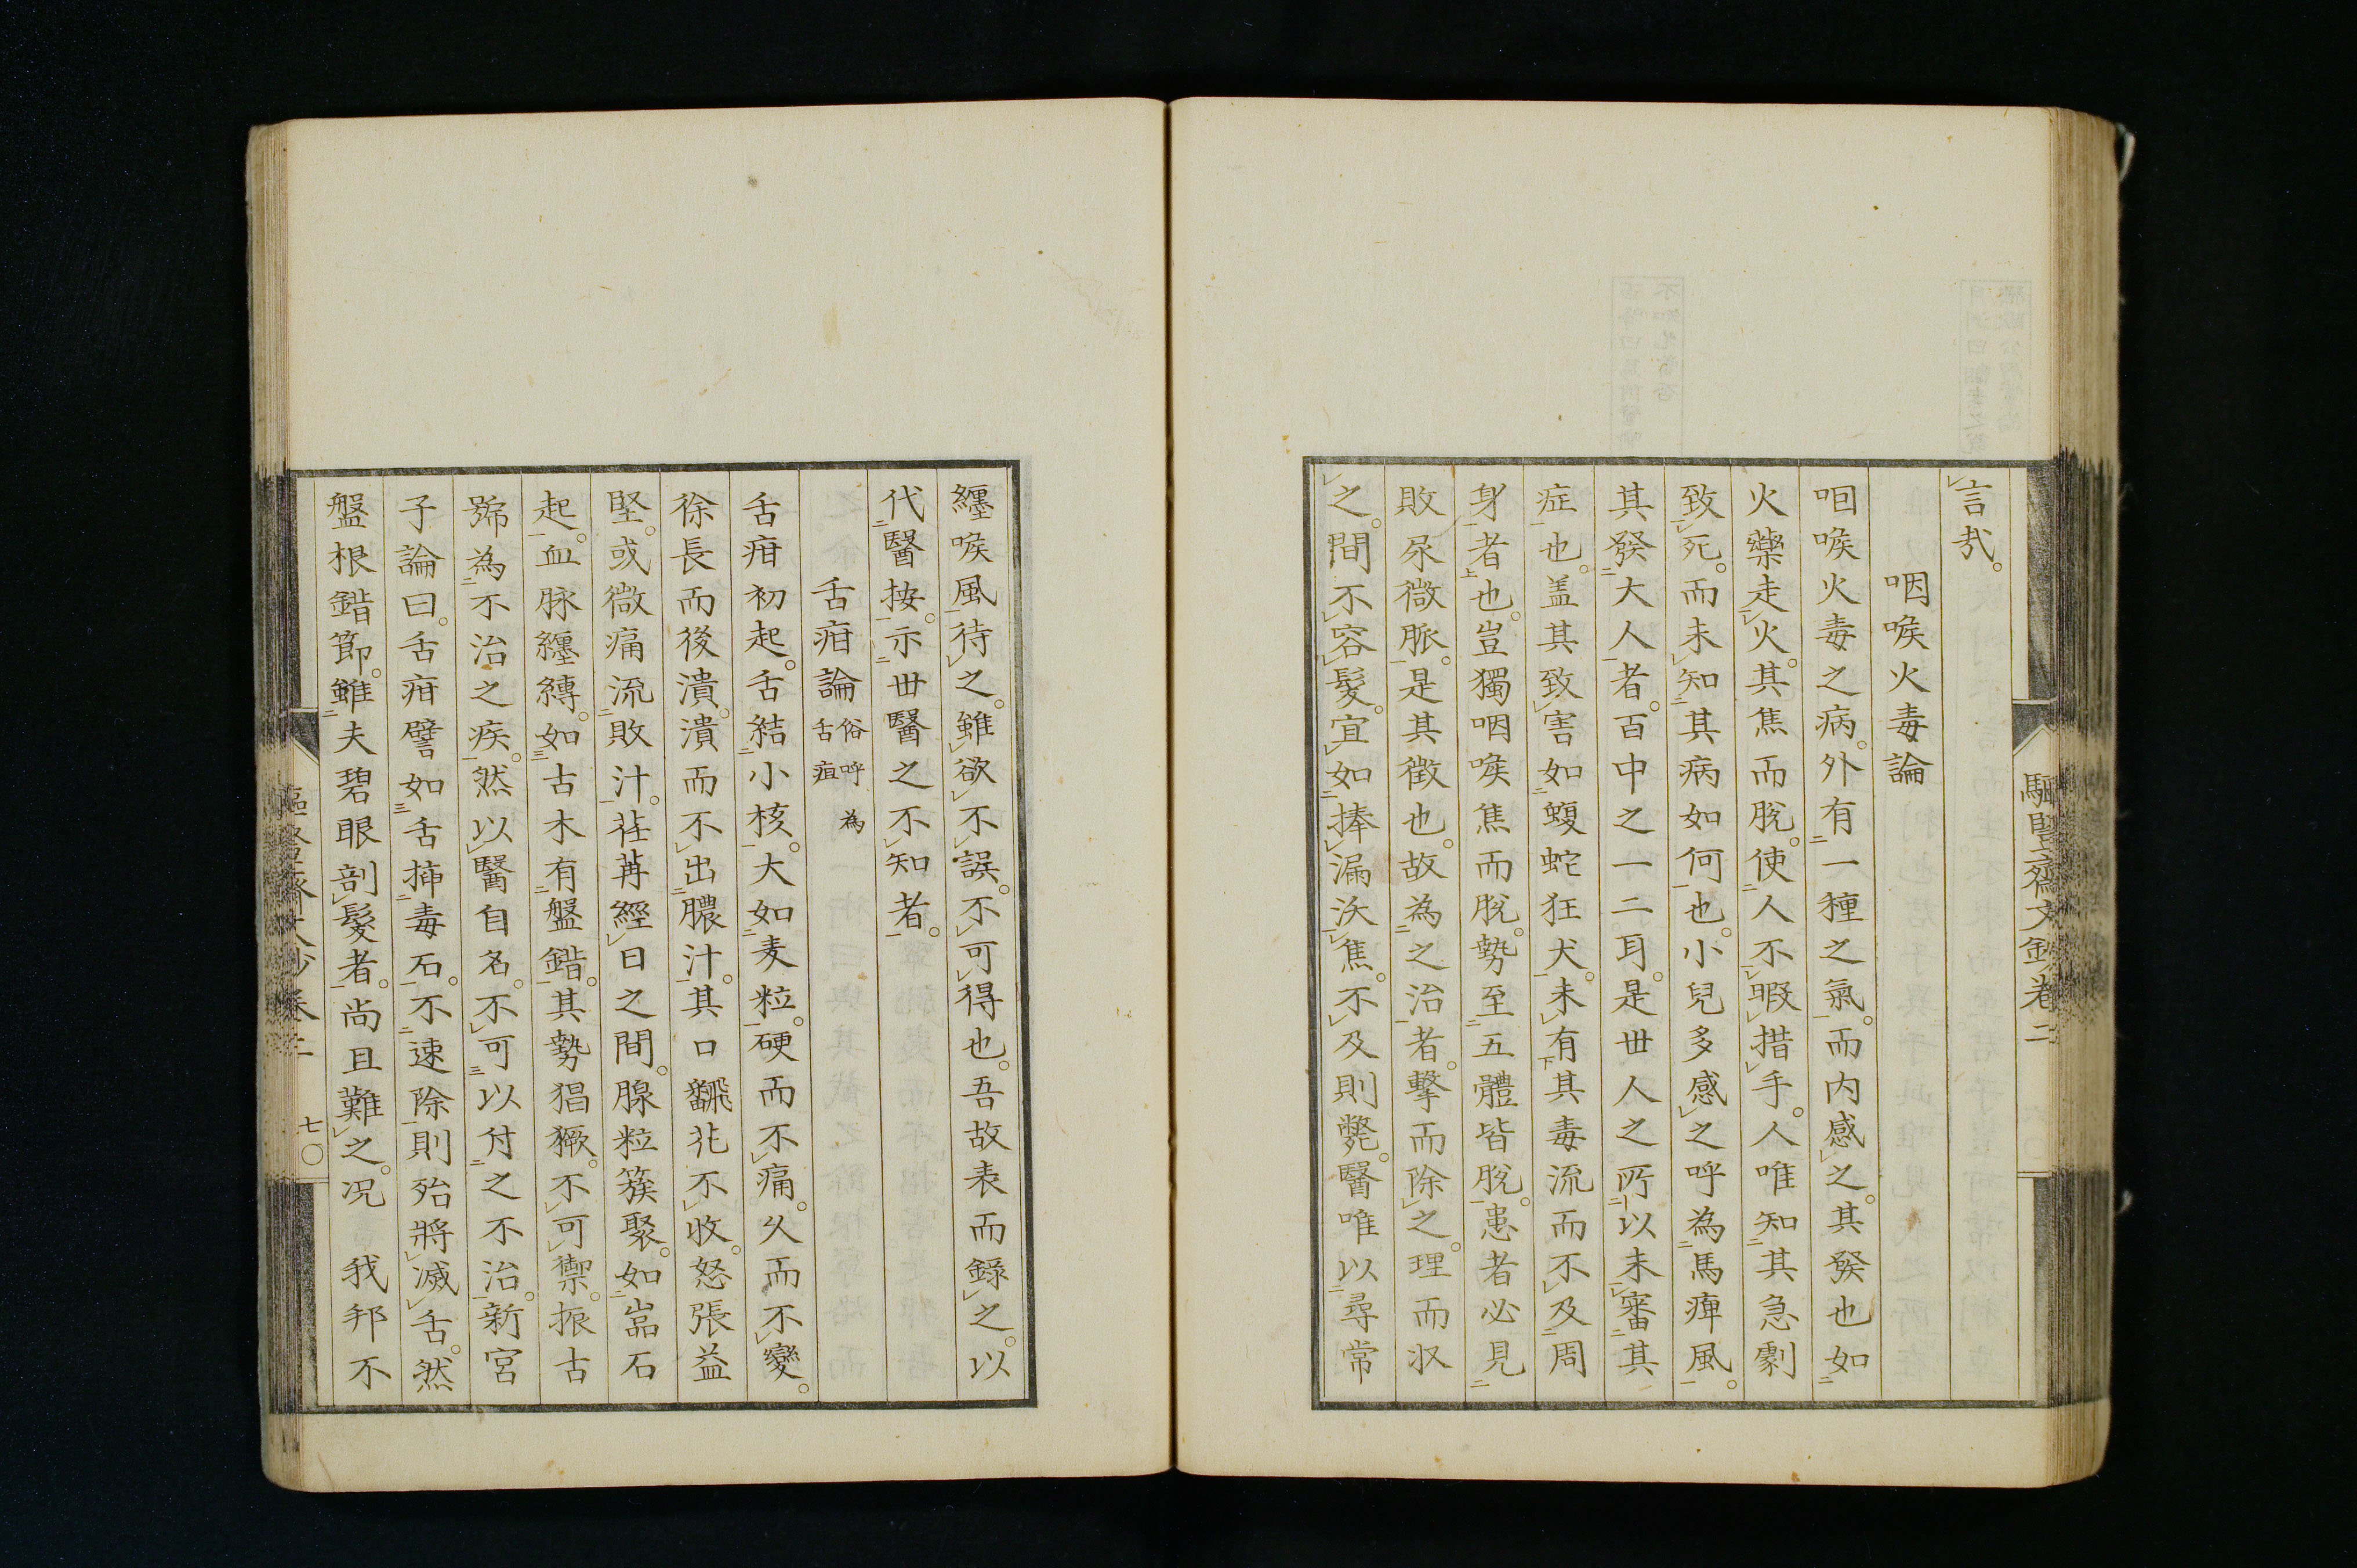 言哉。
咽喉火毒論
咽喉火毒之病。外有一種之氣。而内感之。其發也如
火藥走火。其焦而脫。使人不暇措手。人唯知其急劇
致死。而未知其病如何也。小兒多感之呼為馬痺風。
其發大人者。百中之一二耳。是世人之所以未審其
症也。蓋其致害如蝮蛇狂犬。未有其毒流而不及周
身者也。豈獨咽喉焦而脫。勢至五體皆脫。患者必見
敗尿微脈。是其徵也。故為之治者。擊而除之。理而収
之。間不容髮。宜如捧漏沃焦。不及則斃。醫唯以尋常
驅豎齋文鈔卷二
纏喉風待之。雖欲不誤。不可得也。吾故表而錄之。以
代醫按。示世醫之不知者。
舌疳論 俗呼為舌疽
舌疳初起。舌結小核。大如麦粒。硬而不痛。久而不變。
徐長而後潰。潰而不出膿汁。其口飜花不收。怒張益
堅。或微痛流敗汁。荏苒經日之間。腺粒簇聚。如嵓石
起。血脉纏縛。如古木有盤錯。其勢猖獗。不可禦。振古
號為不治之疾。然以醫自名。不可以付之不治。新宮
子論曰。舌疳譬如舌挿毒石。不速除則殆將滅舌。然
盤根錯節。雖夫碧眼剖髮者。尚且難之。況 我邦不
卷二 七〇